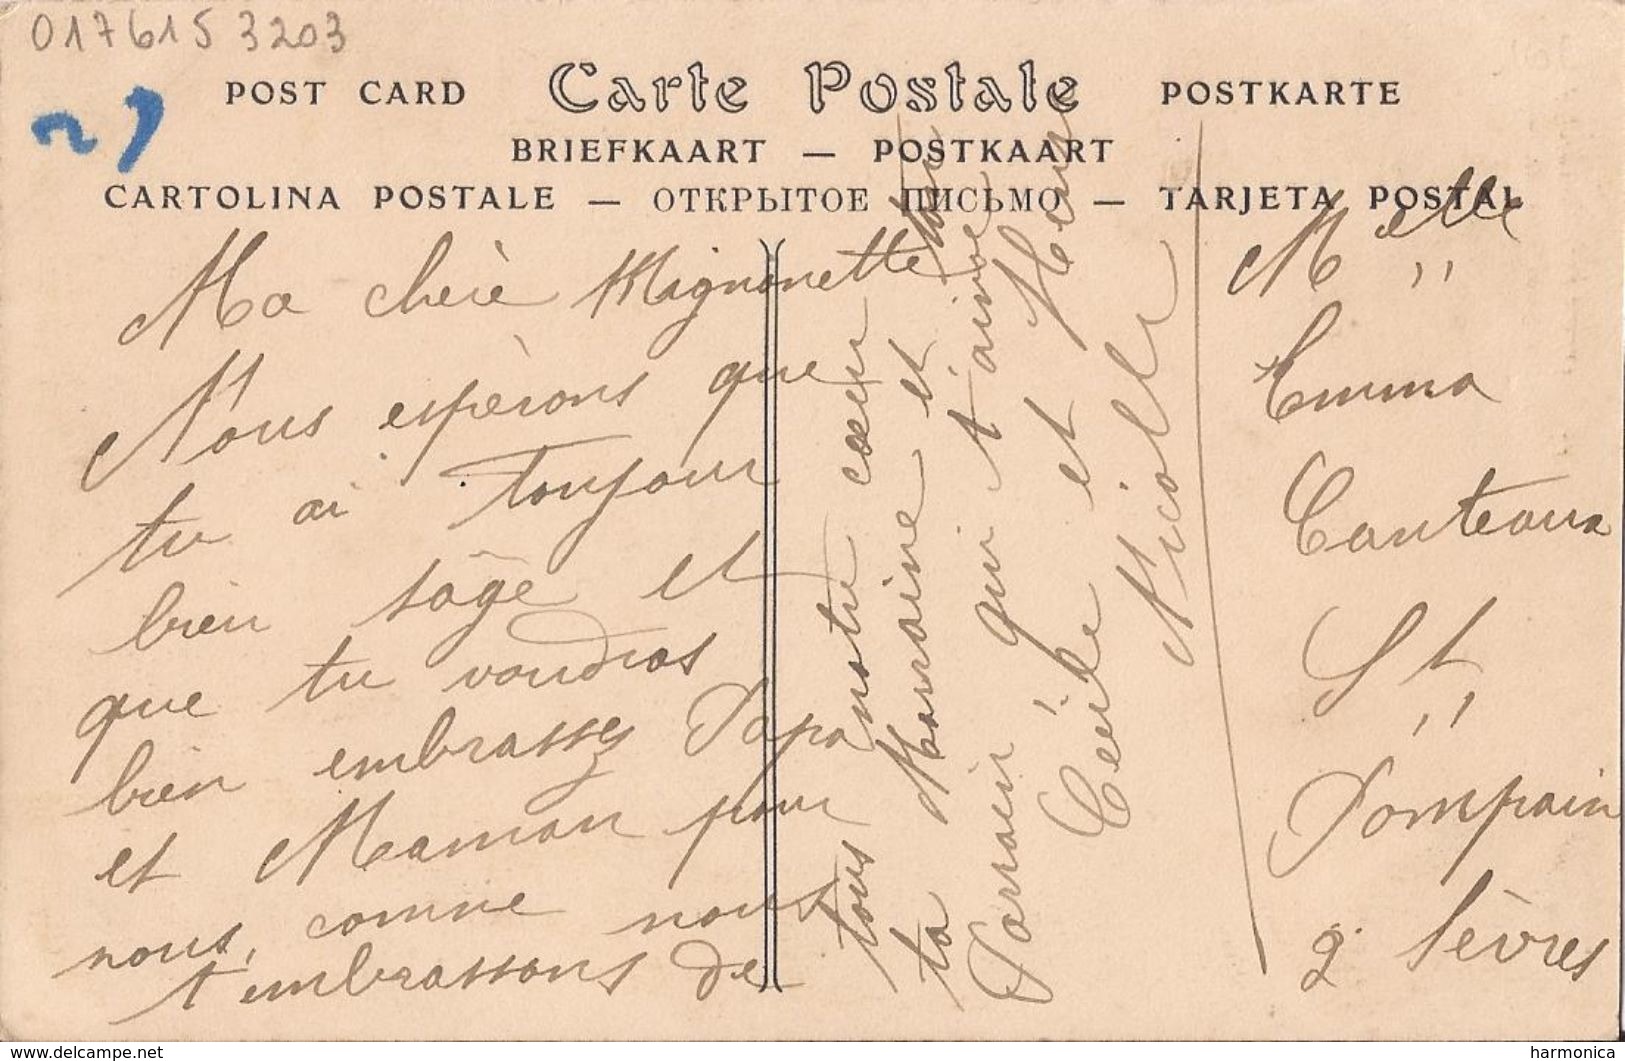 0176153203
POST CARD Carte Postale POSTKARTE
BRIEFKAART — POSTKAART
CARTOLINA POSTALE — ОТКРЫТОЕ ПИСЬМО — TARJETA POSTAL
Ma chère Mignonette
Nous espèrons que
tu ai toujour
bien sage et
que tu voudras
bien embrasser Papa
et Maman pour
nous, comme nous
t'embrassons de
tous notre cœur ton
ta Marraine et
Parrain qui t'aime
Cécile et Henri
Nicolle
Melle
Emma
St
Pompain
2 Sèvres
www.delcampe.net
harmonica